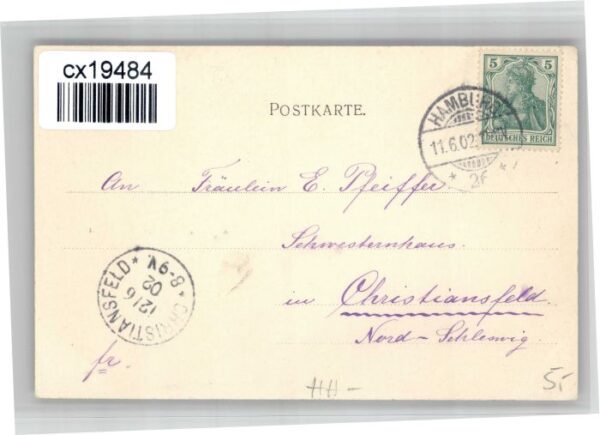 cx19484
POSTKARTE.
5 5
DEUTSCHES REICH
HAMBURG
11.6.02.
* 2f *
An Fräulein E. Pfeiffer
Schwesternhaus
in Christiansfeld
Nord-Schleswig.
* CHRISTIANSFELD *
12/6
02
8-9V.
fr.
HH-
5.-